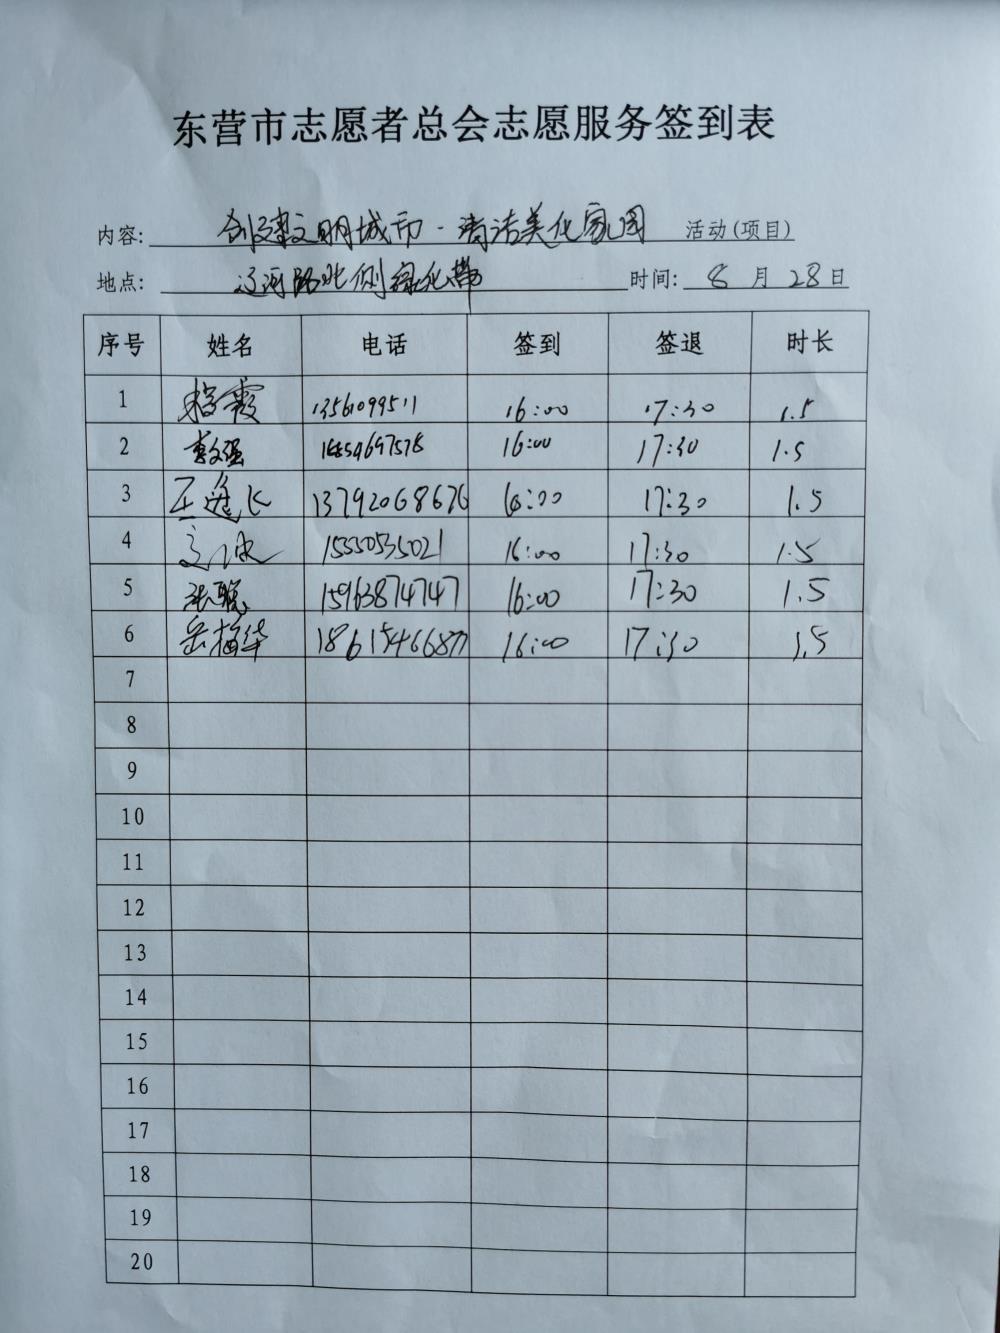 东营市志愿者总会志愿服务签到表
内容: 创建文明城市·清洁美化家园 活动(项目)
地点: 辽河路北侧绿化带 时间: 8月28日
序号 姓名 电话 签到 签退 时长
1 霞 13561099511 16:00 17:30 1.5
2 16:00 17:30 1.5
3 13792068676 16:00 17:30 1.5
4 15550535021 16:00 17:30 1.5
5 张聪 15963874747 16:00 17:30 1.5
6 岳梅华 16:00 17:30 1.5
7
8
9
10
11
12
13
14
15
16
17
18
19
20